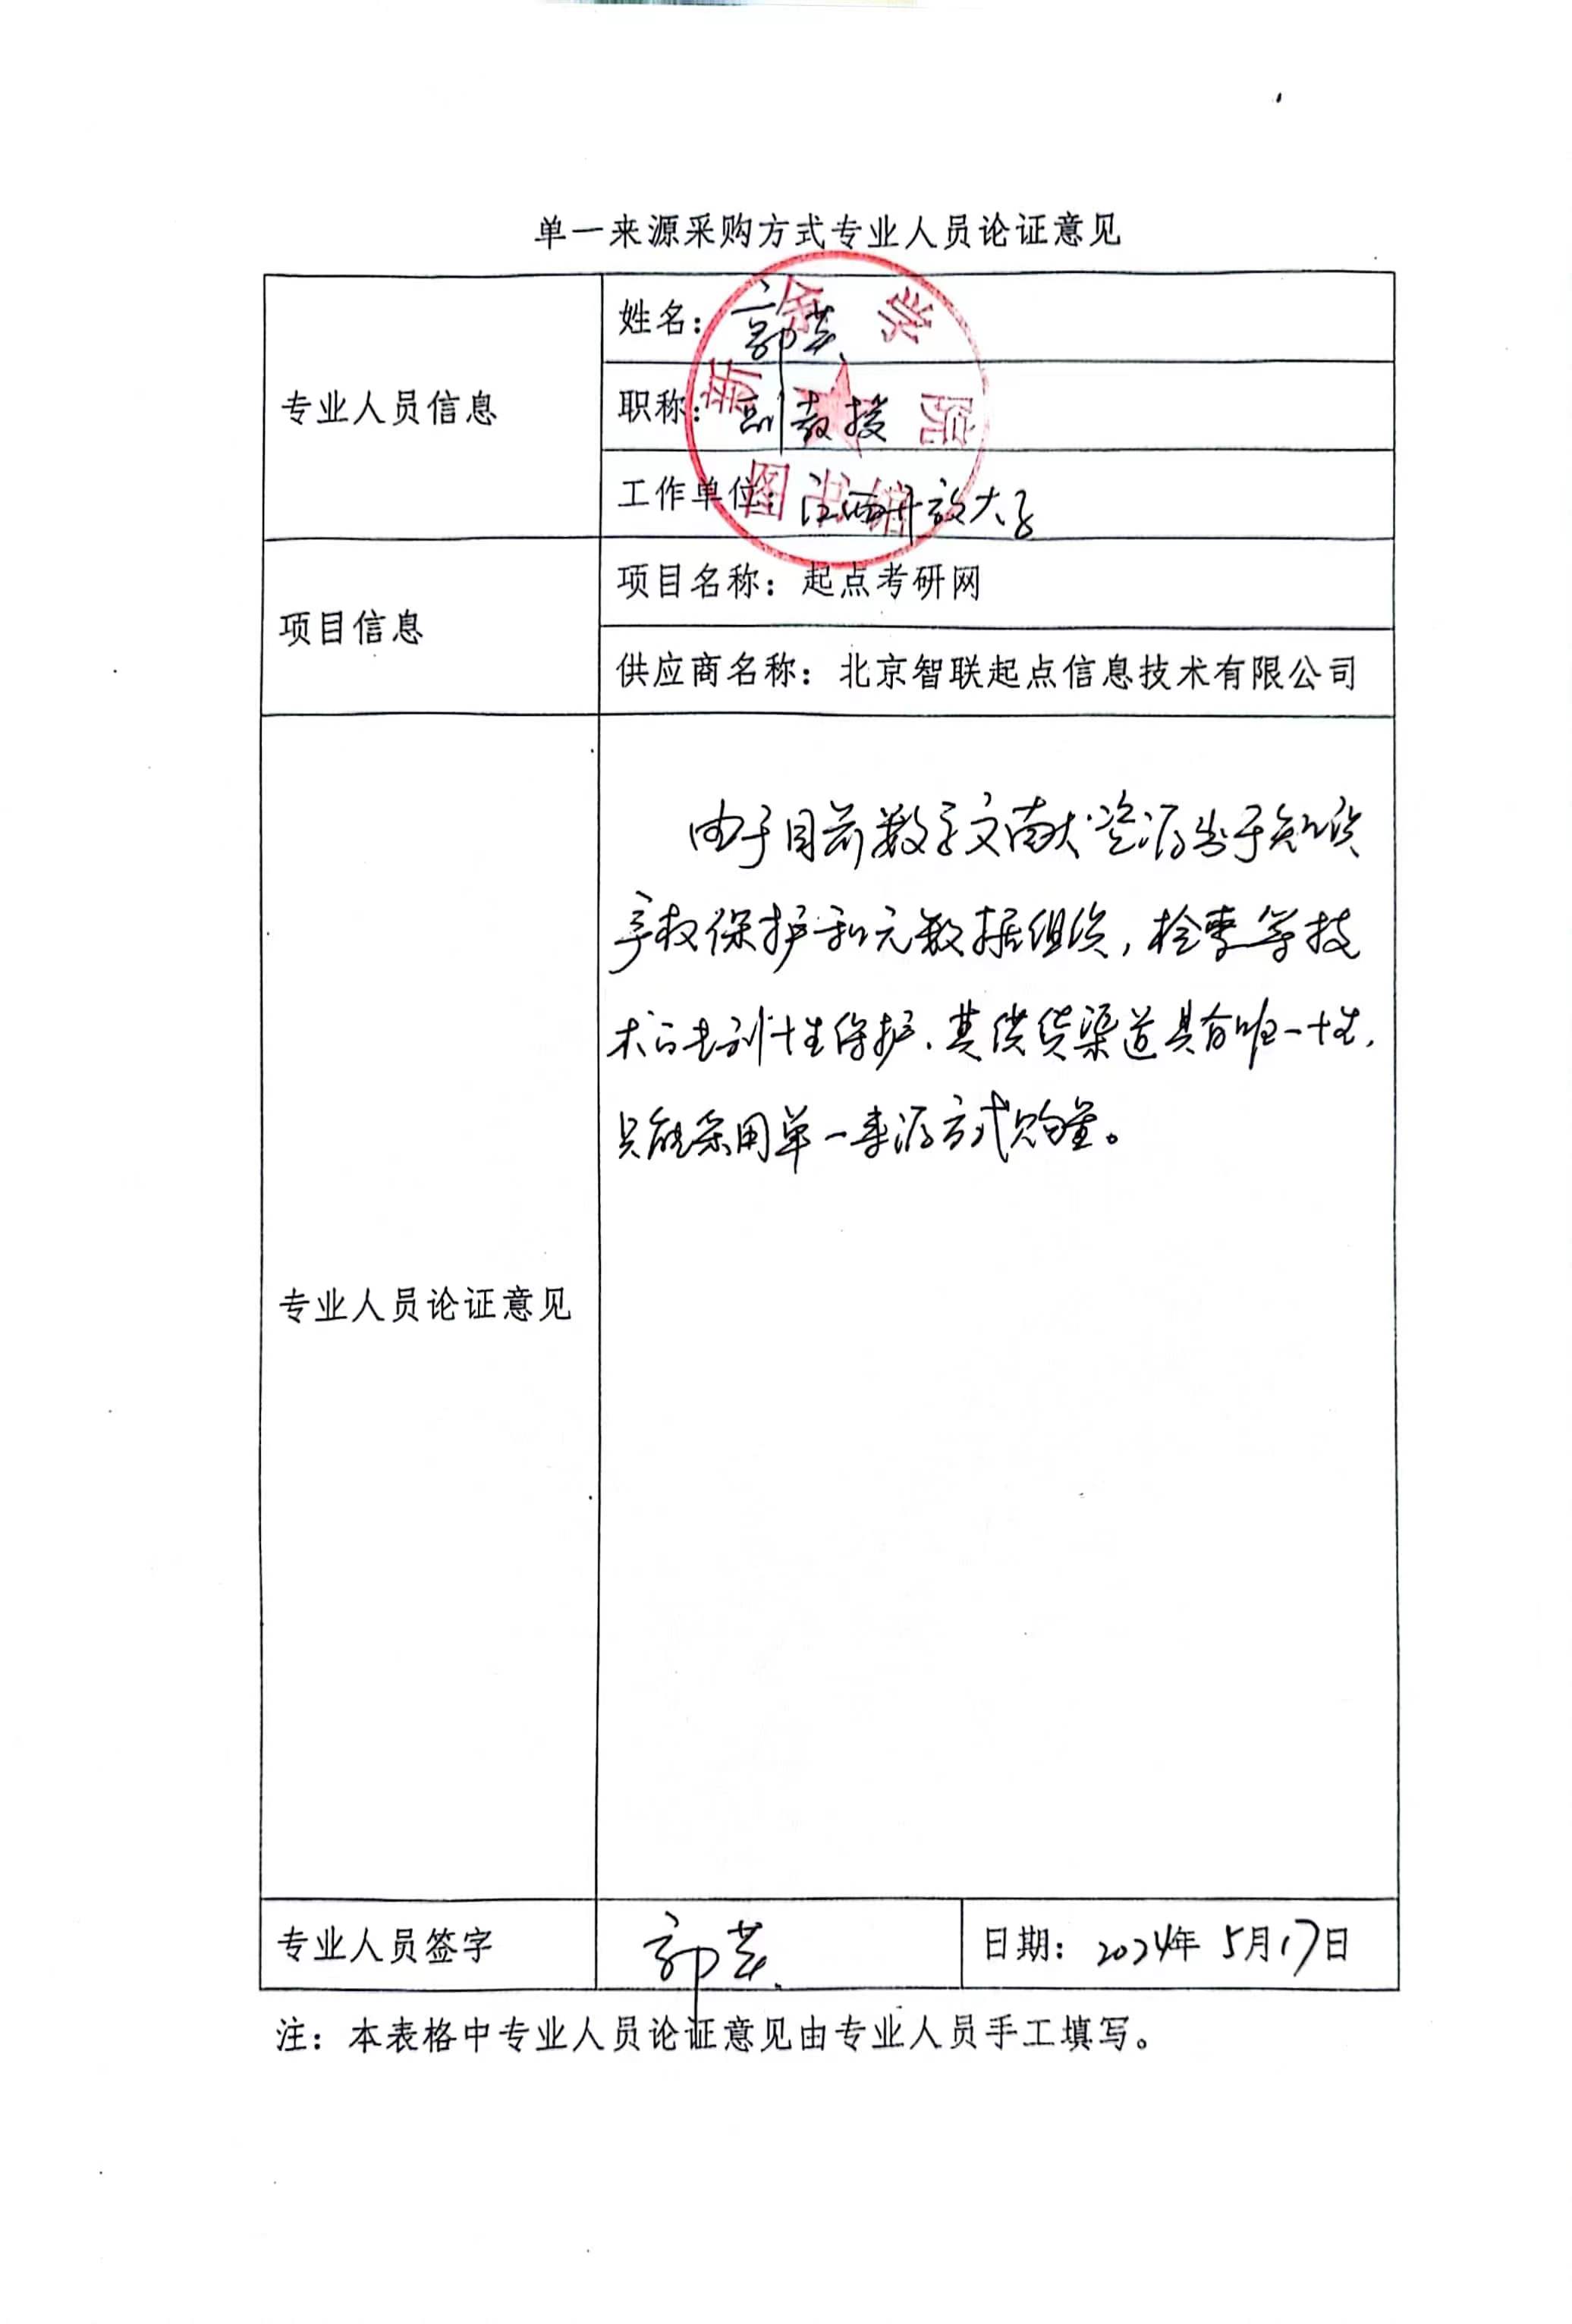 单一来源采购方式专业人员论证意见
专业人员信息
姓名：郭
职称：副教授
工作单位：江西开放大学
新余学院
图书馆
项目信息
项目名称：起点考研网
供应商名称：北京智联起点信息技术有限公司
专业人员论证意见
由于目前数字文献资源出于知识
产权保护和元数据组织，检索等技
术的专利性保护，其供货渠道具有唯一性，
只能采用单一来源方式购置。
专业人员签字
郭
日期：2024年5月17日
注：本表格中专业人员论证意见由专业人员手工填写。